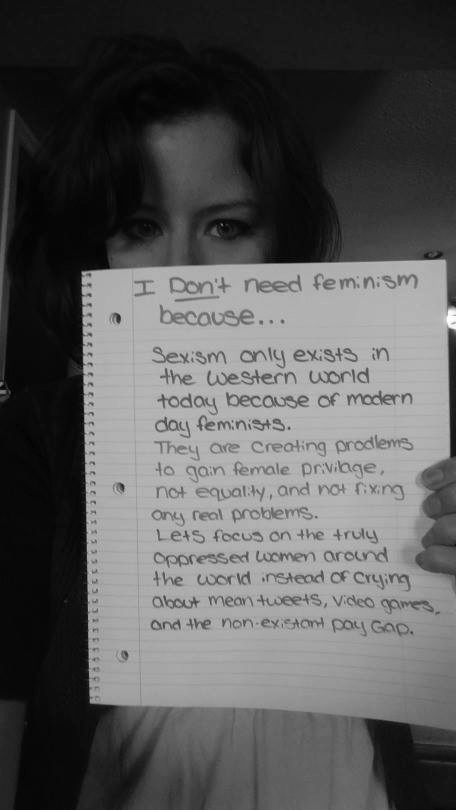 I Don't need feminism
because...
Sexism only exists in
the western world
today because of modern
day feminists.
They are creating prodlems
to gain female privilage,
not equality, and not fixing
any real problems.
Lets focus on the truly
oppressed women around
the world instead of crying
about mean tweets, video games,
and the non-existant pay Gap.